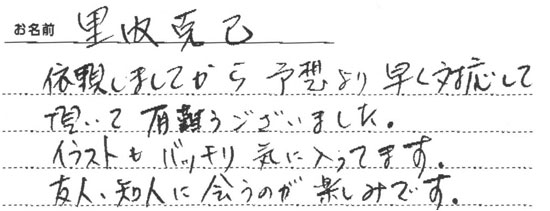 お名前 里収克己
依頼しましてから 予想より 早く対応して
頂いて 有難うございました。
イラストも バッチリ 気に入ってます。
友人、知人に 会うのが 楽しみです。